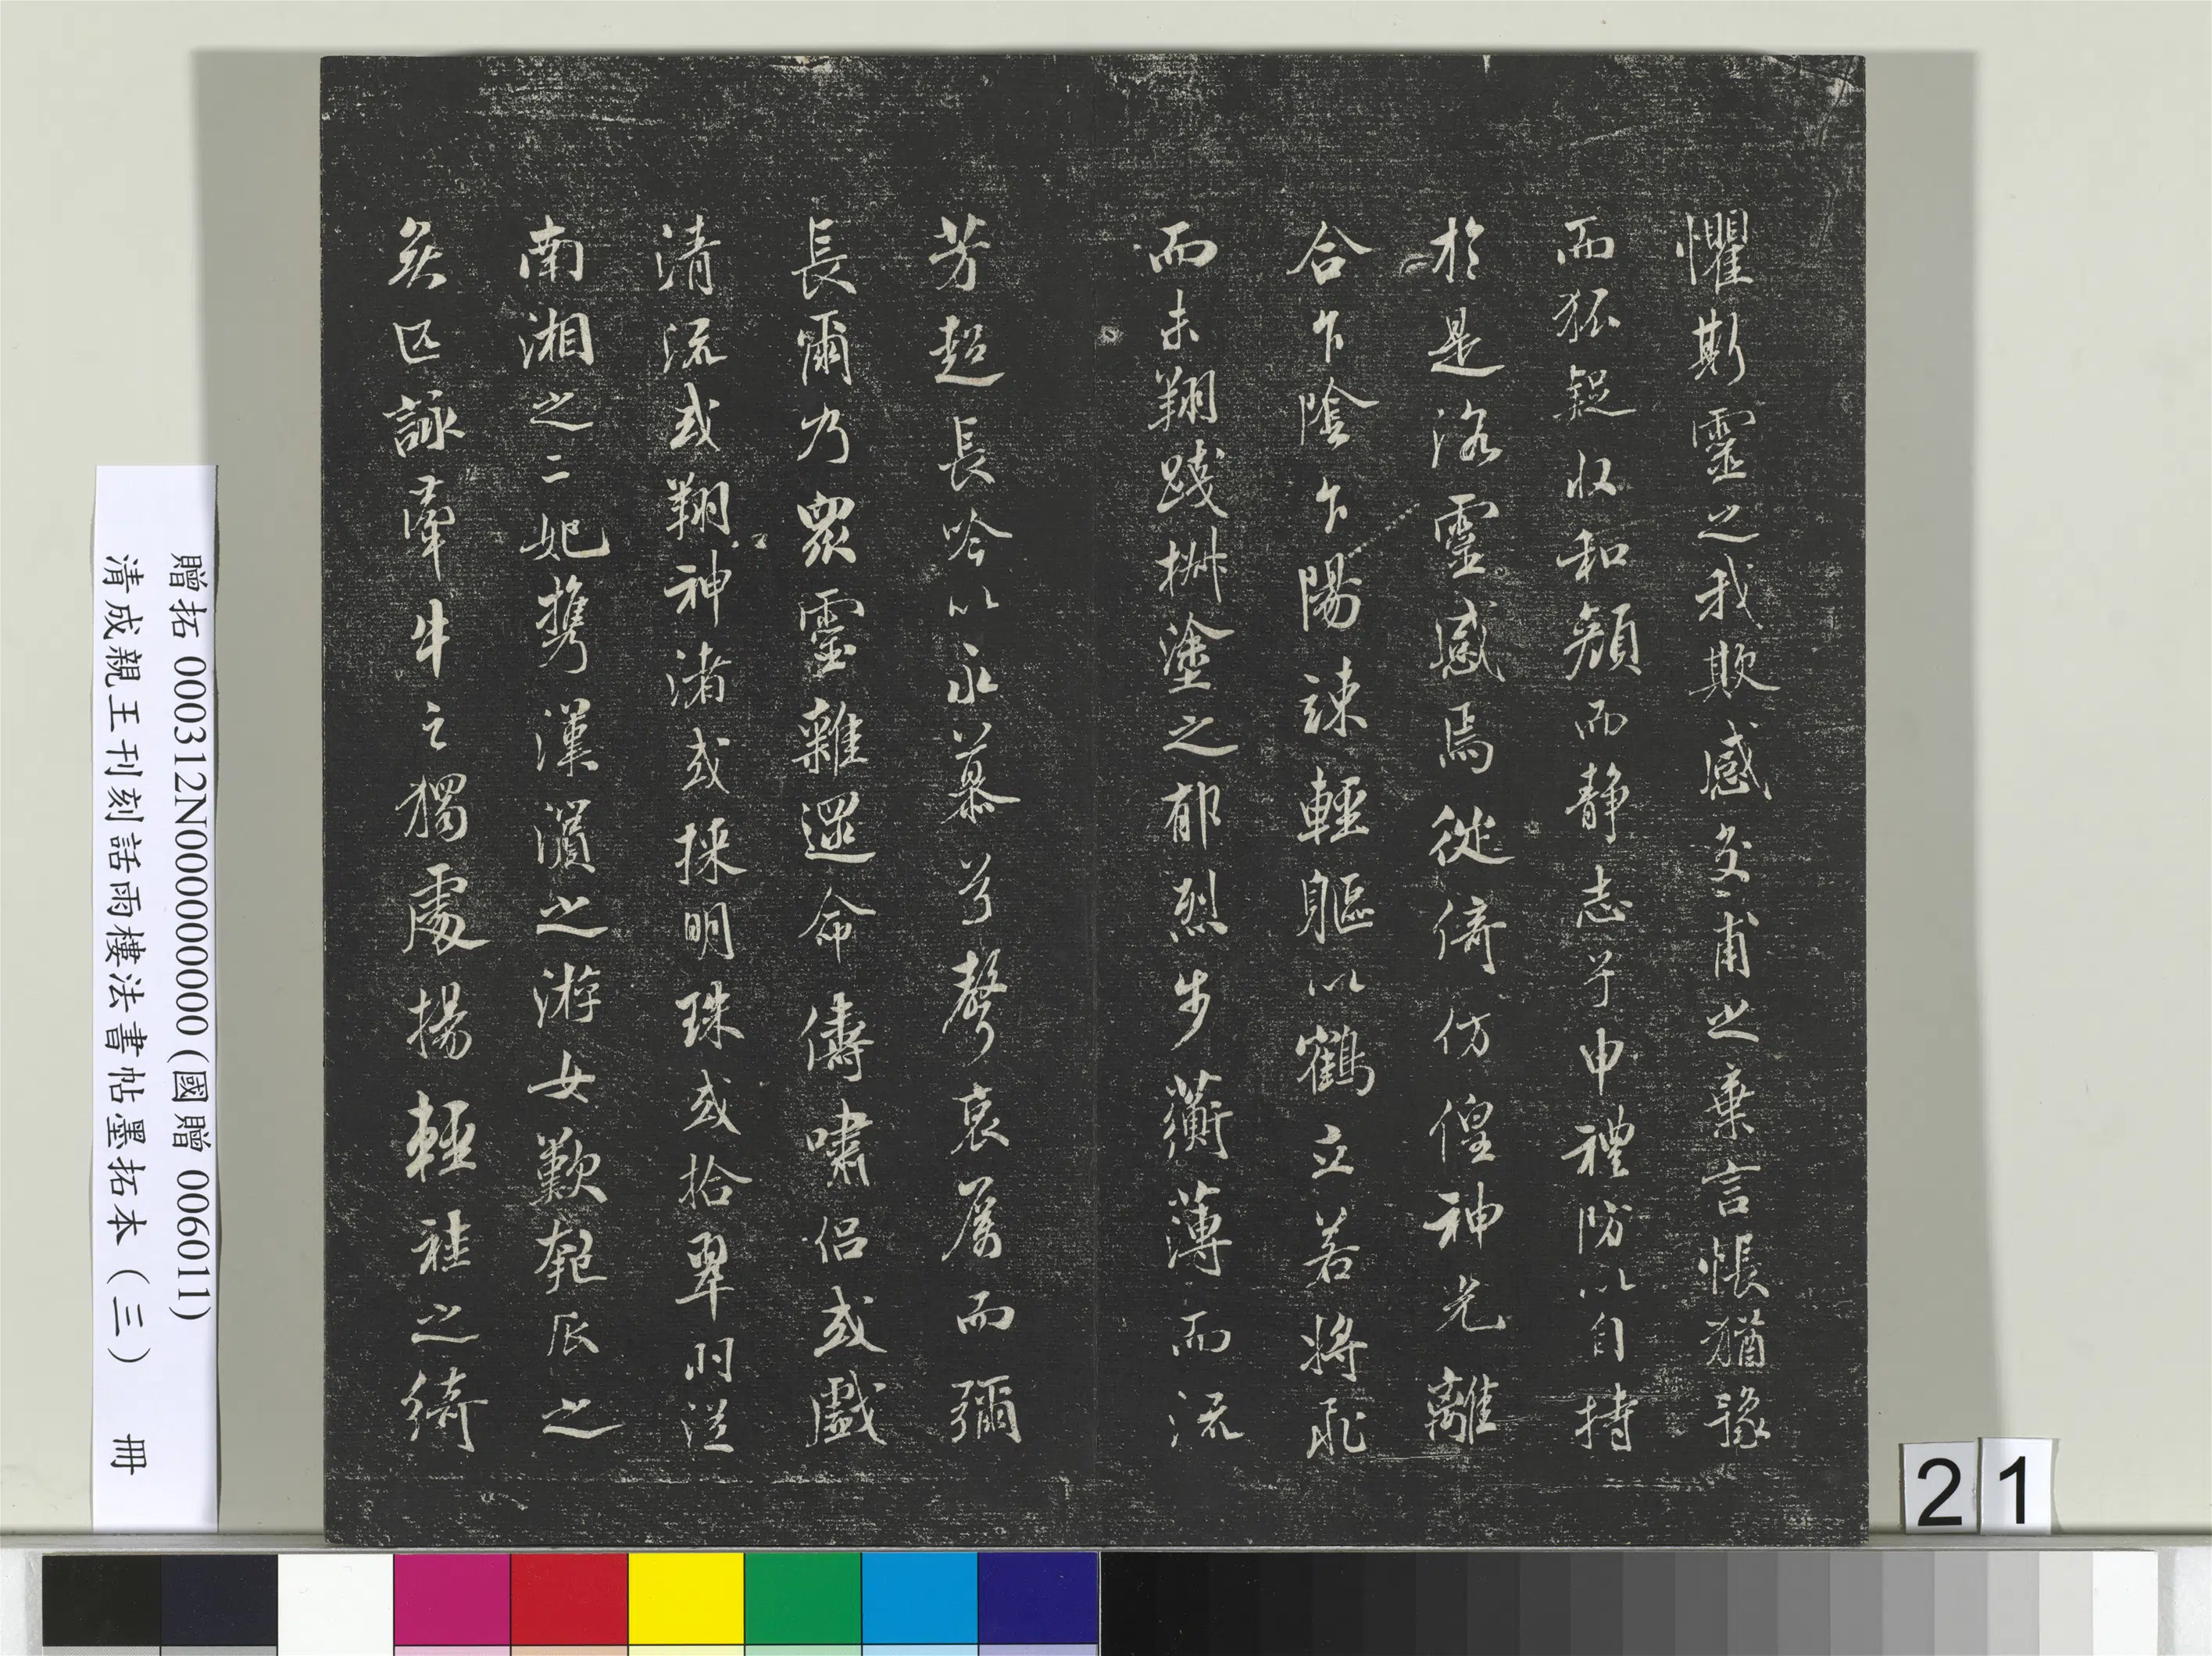 懼斯靈之我欺感交甫之棄言悵猶豫
而狐疑收和顏而静志兮申禮防以自持
於是洛靈感焉徙倚仿偟神光離
合乍陰乍陽竦輕軀以鶴立若將飛
而未翔踐椒塗之郁烈步蘅薄而流
芳超長吟以永慕兮聲哀厲而彌
長爾乃眾靈雜遝命儔嘯侶或戲
清流或翔神渚或採明珠或拾翠羽從
南湘之二妃携漢濱之游女歎匏瓜之
無匹詠牽牛之獨處揚輕袿之綺
贈拓 000312N000000000 (國贈 006011)
清成親王刊刻話雨樓法書帖墨拓本（三） 冊
21